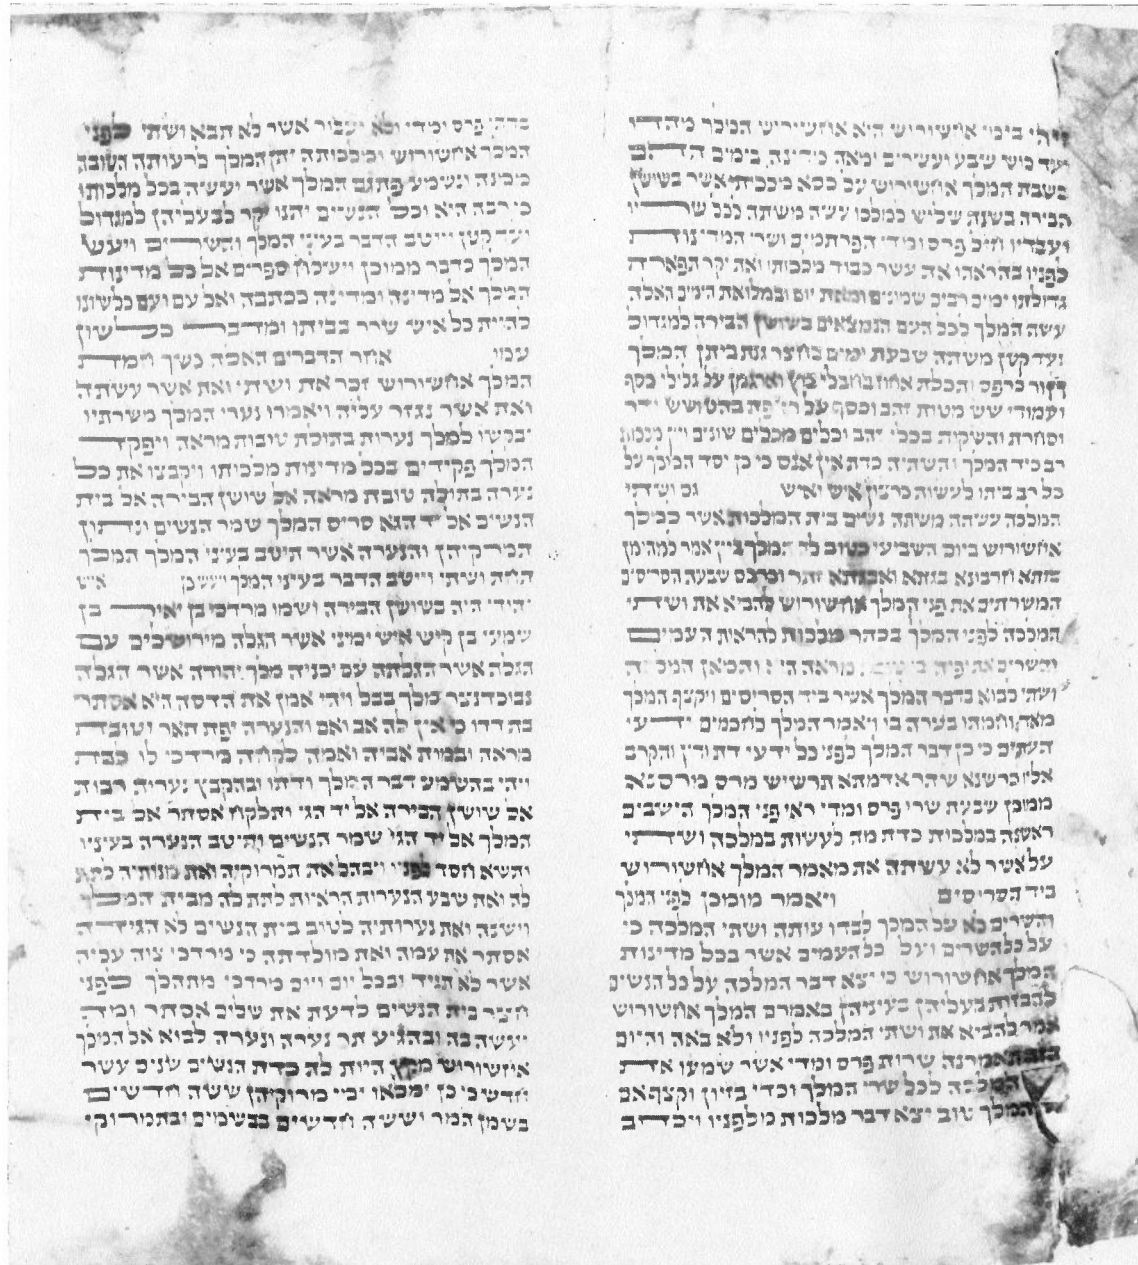 ויהי בימי אחשורוש הוא אחשורוש המלך מהדו
ועד כוש שבע ועשרים ומאה מדינה בימים ההם
כשבת המלך אחשורוש על כסא מלכותו אשר בשושן
הבירה בשנת שלוש למלכו עשה משתה לכל שריו
ועבדיו חיל פרס ומדי הפרתמים ושרי המדינות
לפניו בהראתו את עשר כבוד מלכותו ואת יקר תפארת
גדולתו ימים רבים שמונים ומאת יום ובמלואת הימים האלה
עשה המלך לכל העם הנמצאים בשושן הבירה למגדול
ועד קטן משתה שבעת ימים בחצר גנת ביתן המלך
חור כרפס ותכלת אחוז בחבלי בוץ וארגמן על גלילי כסף
ועמודי שש מטות זהב וכסף על רצפת בהט ושש ודר
וסחרת והשקות בכלי זהב וכלים מכלים שונים ויין מלכות
רב כיד המלך והשתיה כדת אין אנס כי כן יסד המלך על
כל רב ביתו לעשות כרצון איש ואיש גם ושתי
המלכה עשתה משתה נשים בית המלכות אשר למלך
אחשורוש ביום השביעי כטוב לב המלך ביין אמר למהומן
בזתא חרבונא בגתא ואבגתא זתר וכרכס שבעת הסריסים
המשרתים את פני המלך אחשורוש להביא את ושתי
המלכה לפני המלך בכתר מלכות להראות העמים
והשרים את יפיה כי טובת מראה היא ותמאן המלכה
ושתי לבוא בדבר המלך אשר ביד הסריסים ויקצף המלך
מאד וחמתו בערה בו ויאמר המלך לחכמים ידעי
העתים כי כן דבר המלך לפני כל ידעי דת ודין והקרב
אליו כרשנא שתר אדמתא תרשיש מרס מרסנא
ממוכן שבעת שרי פרס ומדי ראי פני המלך הישבים
ראשנה במלכות כדת מה לעשות במלכה ושתי
על אשר לא עשתה את מאמר המלך אחשורוש
ביד הסריסים ויאמר מומכן לפני המלך
והשרים לא על המלך לבדו עותה ושתי המלכה כי
על כל השרים ועל כל העמים אשר בכל מדינות
המלך אחשורוש כי יצא דבר המלכה על כל הנשים
להבזות בעליהן בעיניהן באמרם המלך אחשורוש
אמר להביא את ושתי המלכה לפניו ולא באה והיום
הזה תאמרנה שרות פרס ומדי אשר שמעו את
המלכה לכל שרי המלך וכדי בזיון וקצף אם
המלך טוב יצא דבר מלכות מלפניו ויכתב
בדתי פרס ומדי ולא יעבור אשר לא תבא ושתי לפני
המלך אחשורוש ומלכותה יתן המלך לרעותה הטובה
ממנה ונשמע פתגם המלך אשר יעשה בכל מלכותו
כי רבה היא וכל הנשים יתנו יקר לבעליהן למגדול
ועד קטן וייטב הדבר בעיני המלך והשרים ויעש
המלך כדבר ממוכן וישלח ספרים אל כל מדינות
המלך אל מדינה ומדינה ככתבה ואל עם ועם כלשונו
להיות כל איש שרר בביתו ומדבר כלשון
עמו אחר הדברים האלה כשך חמת
המלך אחשורוש זכר את ושתי ואת אשר עשתה
ואת אשר נגזר עליה ויאמרו נערי המלך משרתיו
יבקשו למלך נערות בתולת טובות מראה ויפקד
המלך פקידים בכל מדינות מלכותו ויקבצו את כל
נערה בתולה טובת מראה אל שושן הבירה אל בית
הנשים אל יד הגא סריס המלך שמר הנשים ונתון
תמרקיהן והנערה אשר תיטב בעיני המלך תמלך
תחת ושתי וייטב הדבר בעיני המלך ויעש כן איש
יהודי היה בשושן הבירה ושמו מרדכי בן יאיר בן
שמעי בן קיש איש ימיני אשר הגלה מירושלים עם
הגלה אשר הגלתה עם יכניה מלך יהודה אשר הגלה
נבוכדנצר מלך בבל ויהי אמן את הדסה היא אסתר
בת דדו כי אין לה אב ואם והנערה יפת תאר וטובת
מראה ובמות אביה ואמה לקחה מרדכי לו לבת
ויהי בהשמע דבר המלך ודתו ובהקבץ נערות רבות
אל שושן הבירה אל יד הגי ותלקח אסתר אל בית
המלך אל יד הגי שמר הנשים ותיטב הנערה בעיניו
ותשא חסד לפניו ויבהל את תמרוקיה ואת מנותיה לתת
לה ואת שבע הנערות הראיות לתת לה מבית המלך
וישנה ואת נערותיה לטוב בית הנשים לא הגידה
אסתר את עמה ואת מולדתה כי מרדכי צוה עליה
אשר לא תגיד ובכל יום ויום מרדכי מתהלך לפני
חצר בית הנשים לדעת את שלום אסתר ומה
יעשה בה ובהגיע תר נערה ונערה לבוא אל המלך
אחשורוש מקץ היות לה כדת הנשים שנים עשר
חדש כי כן ימלאו ימי מרוקיהן ששה חדשים
בשמן המר וששה חדשים בבשמים ובתמרוקי